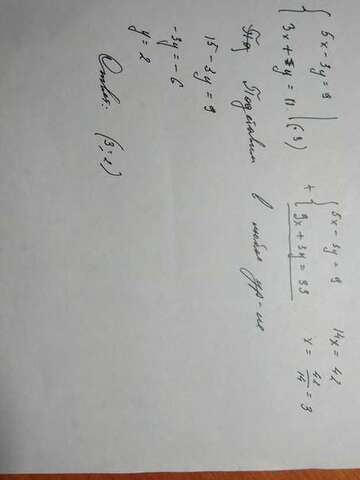 { 5x - 3y = 9
{ 3x + y = 11 | (·3)
+ { 5x - 3y = 9
{ 9x + 3y = 33
14x = 42
x = 42/14 = 3
Подставим в любое ур-ие
15 - 3y = 9
-3y = -6
y = 2
Ответ: (3; 2)